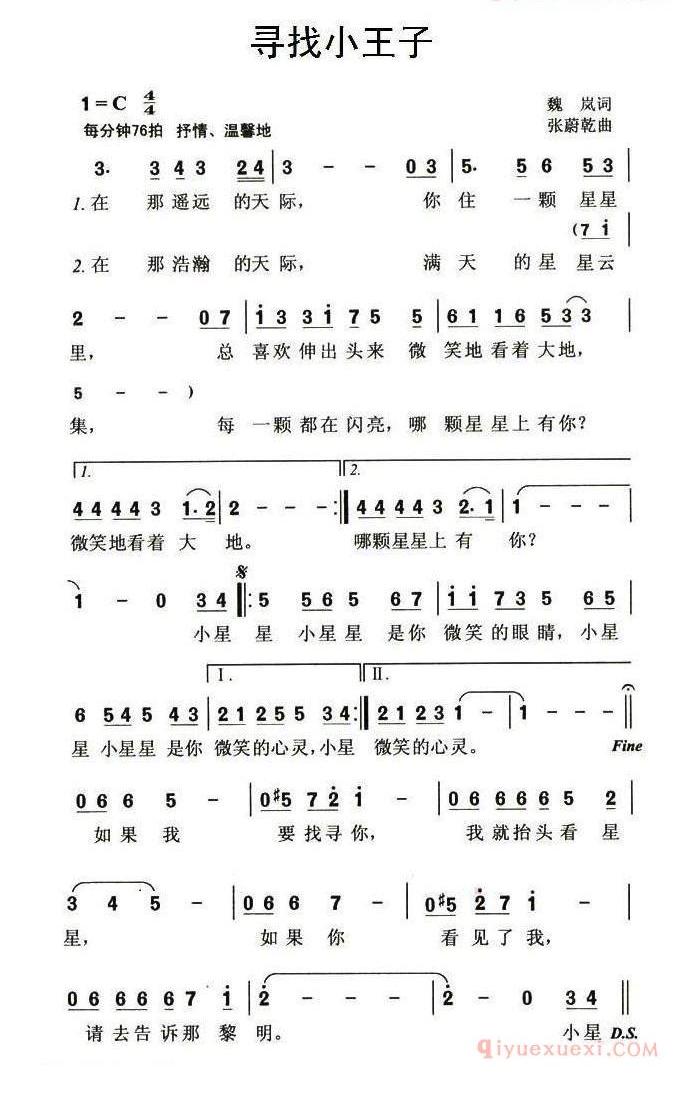 寻找小王子
1=C 4/4
魏 岚词
每分钟76拍 抒情、温馨地
张蔚乾曲
3· 3 4 3 2 4 | 3 - - 0 3 | 5· 5 6 5 3 |
1.在 那遥远 的天 际, 你 住 一 颗 星星
(7 i
2.在 那浩瀚 的天 际, 满 天 的 星 星云
2 - - 0 7 | i 3 3 i 7 5 5 | 6 1 1 6 5 3 3 |
里, 总 喜欢 伸出 头来 微 笑地 看着 大地,
5 - - )
集, 每 一颗 都在 闪亮, 哪 颗星 星上 有你?
1. 2.
4 4 4 4 3 1·2 | 2 - - - :| 4 4 4 4 3 2·1 | 1 - - - |
微笑地看着 大 地。 哪颗星星上 有 你?
1 - 0 3 4 |: 5 5 6 5 6 7 | i i 7 3 5 6 5 |
小星 星 小星 星 是你 微笑 的眼 睛, 小星
I. II.
6 5 4 5 4 3 | 2 1 2 5 5 3 4 :| 2 1 2 3 1 - | 1 - - ||
星 小星星 是你 微笑的心灵,小星 微笑的心灵。 Fine
0 6 6 5 - | 0 #5 7 2 i - | 0 6 6 6 6 5 2 |
如果 我 要 找寻 你, 我 就抬头 看 星
3 4 5 - | 0 6 6 7 - | 0 #5 2 7 i - |
星, 如果 你 看 见了 我,
0 6 6 6 6 7 i | 2 - - - | 2 - 0 3 4 ||
请 去告 诉那 黎 明。 小星 D.S.
qiyuexuexi.com